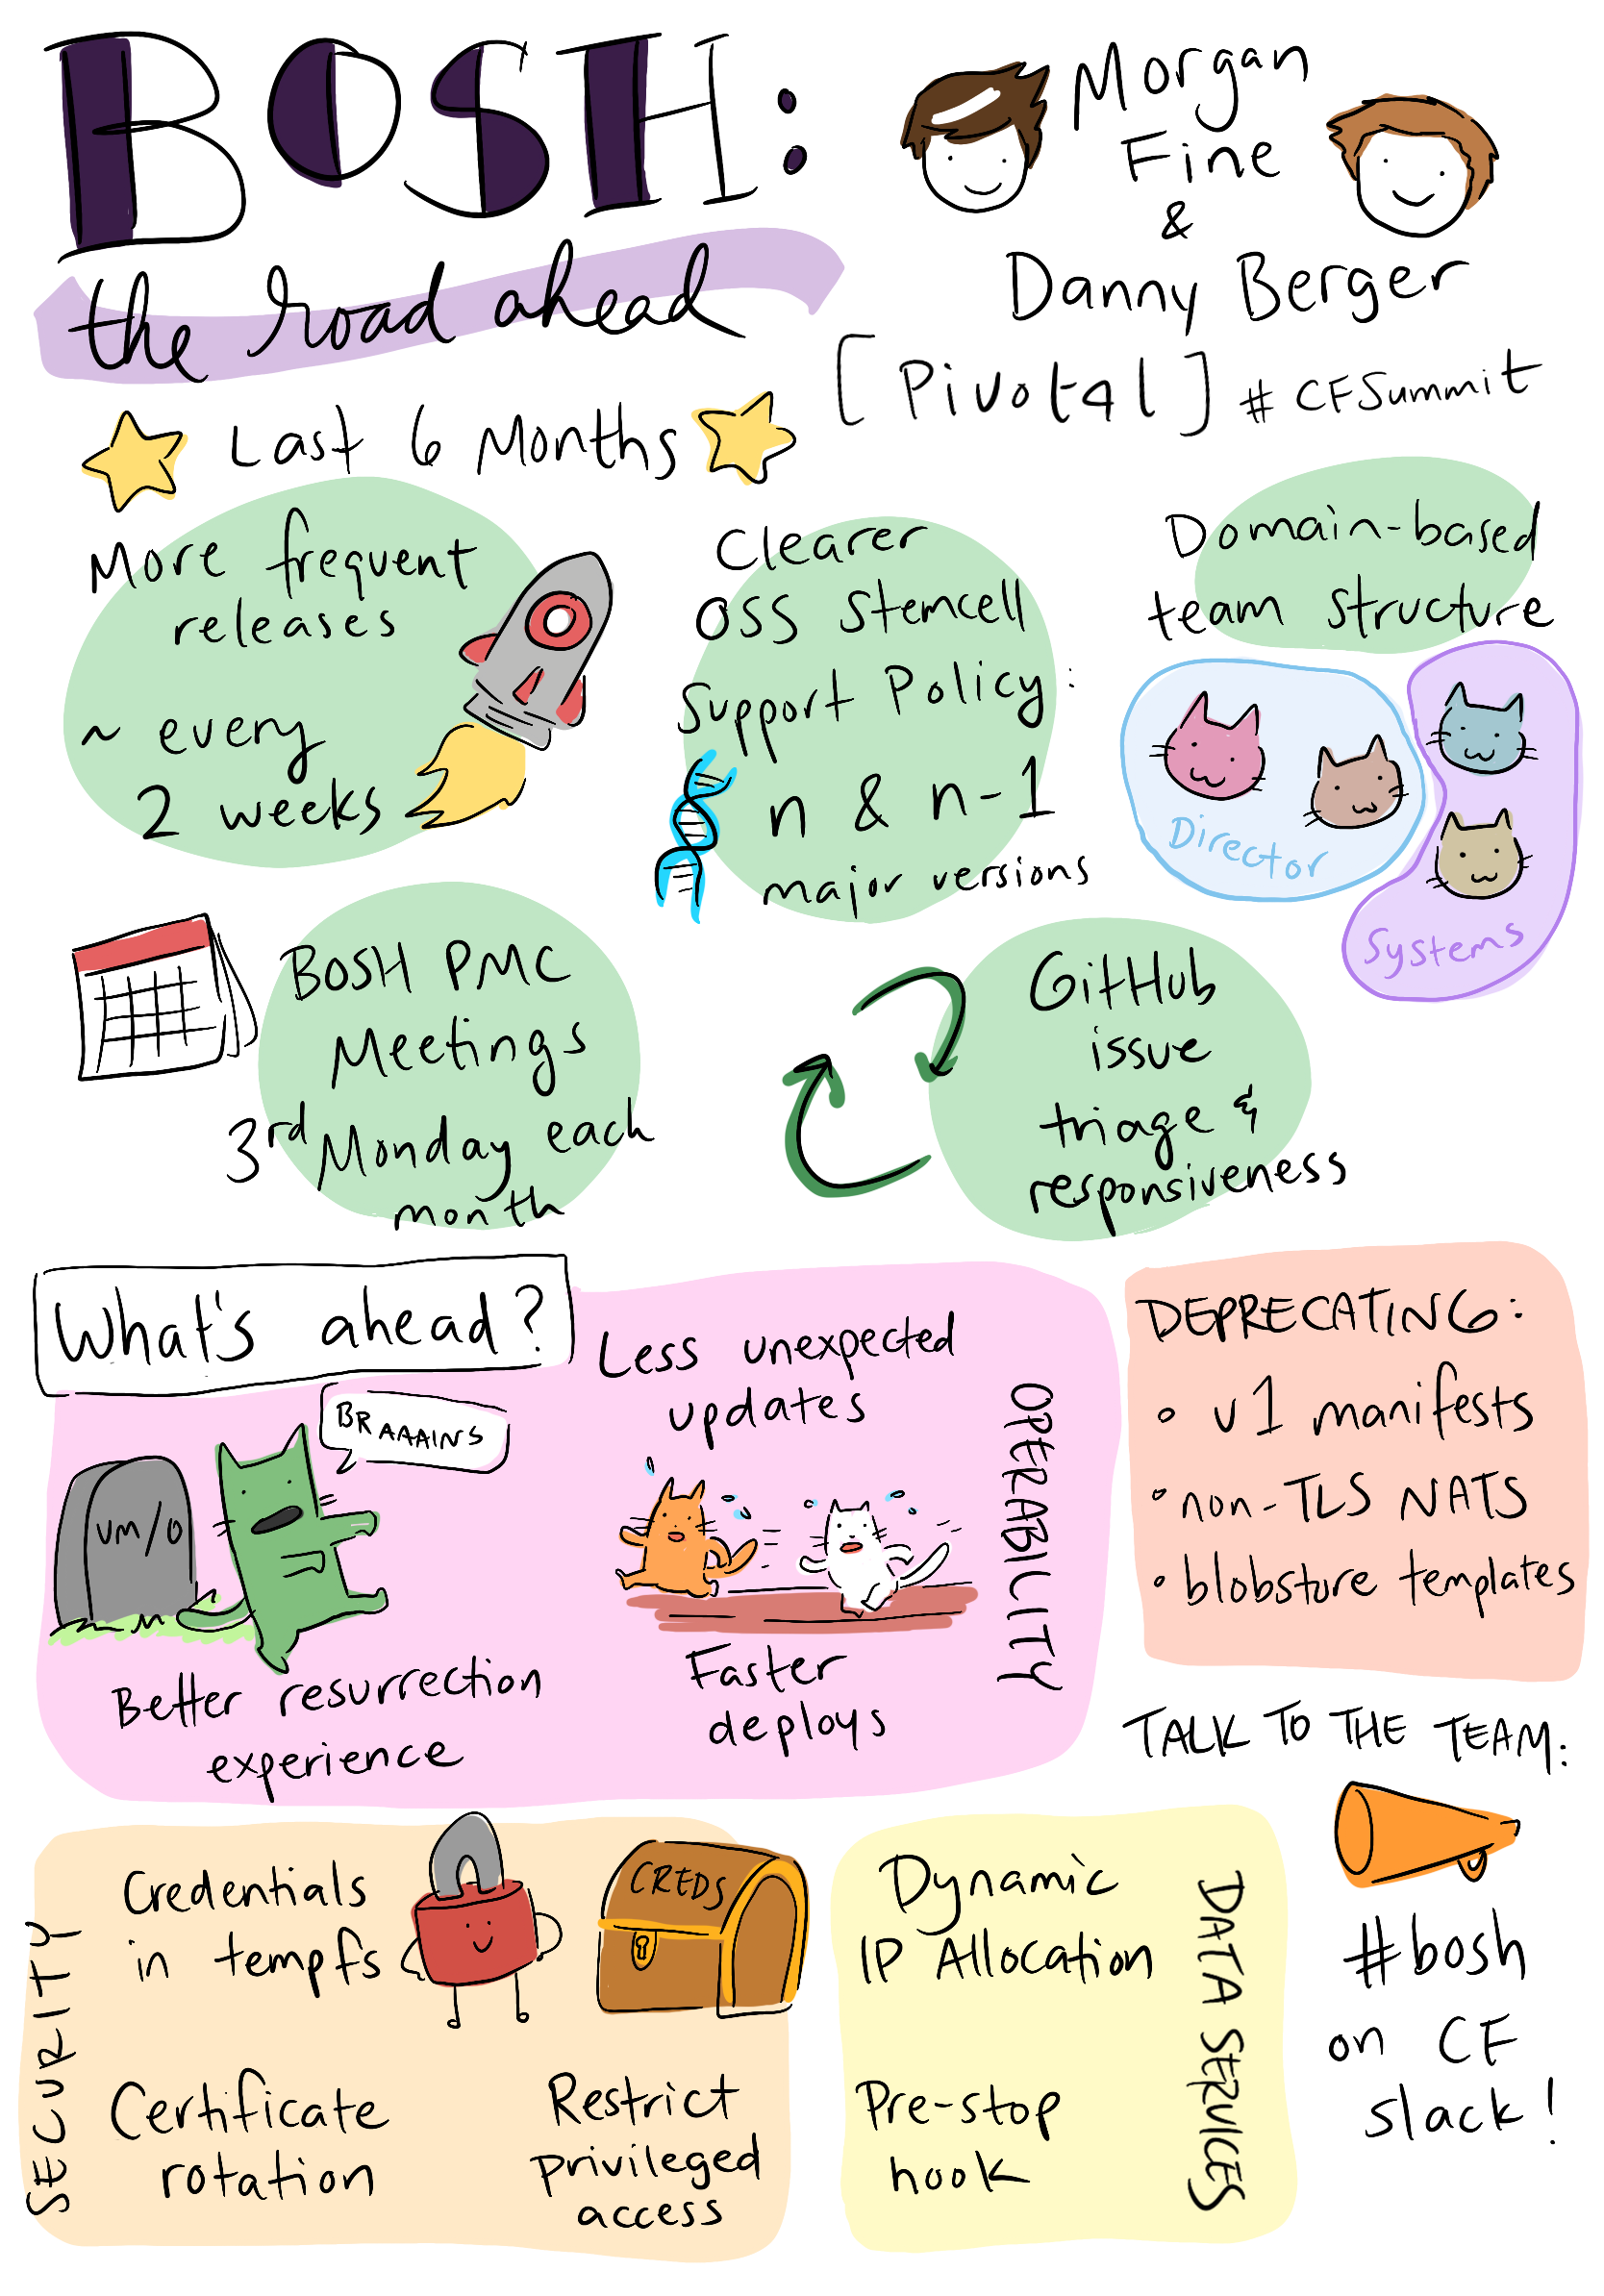 BOSH:
the road ahead
Morgan
Fine
&
Danny Berger
[Pivotal] #CFSummit
Last 6 Months
More frequent
releases
~ every
2 weeks
Clearer
OSS Stemcell
Support Policy:
n & n-1
major versions
Domain-based
team structure
Director
Systems
BOSH PMC
Meetings
3rd Monday each
month
GitHub
issue
triage &
responsiveness
What's ahead?
BRAAAINS
VM/0
Better resurrection
experience
Less unexpected
updates
Faster
deploys
OPERABILITY
DEPRECATING:
• v1 manifests
• non-TLS NATS
• blobsture templates
TALK TO THE TEAM:
#bosh
on CF
slack!
SECURITY
Credentials
in tempfs
CREDS
Certificate
rotation
Restrict
privileged
access
Dynamic
IP Allocation
Pre-stop
hook
DATA SERVICES